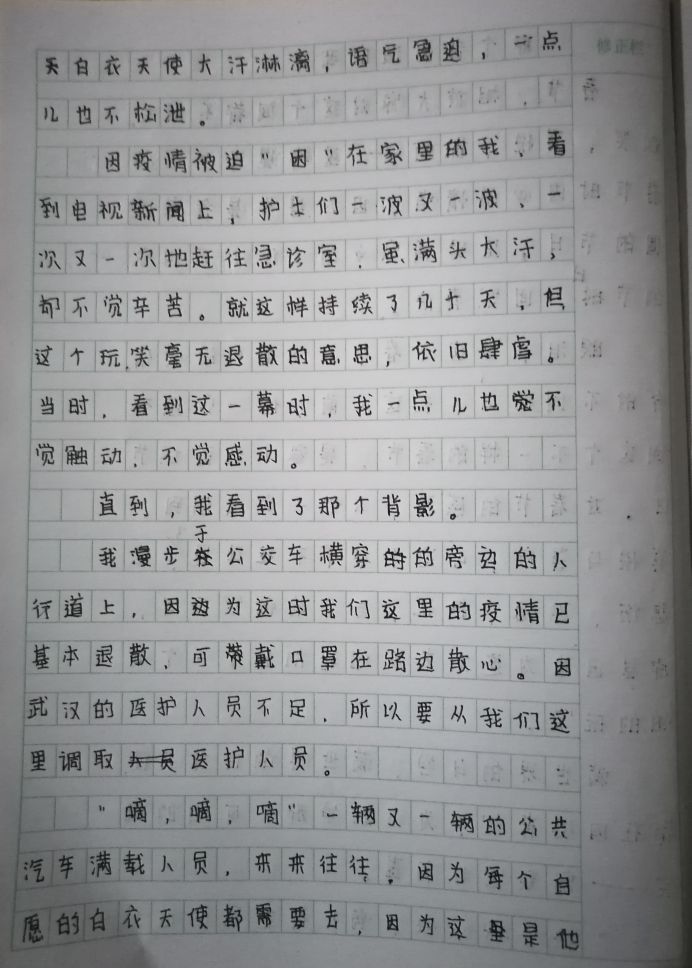 修正栏
天白衣天使大汗淋漓，语气急迫，一点
儿也不松泄。
因疫情被迫“困”在家里的我，看
到电视新闻上，护士们一波又一波，一
次又一次地赶往急诊室，虽满头大汗，
却不觉辛苦。就这样持续了几十天，但
这个玩笑毫无退散的意思，依旧肆虐。
当时，看到这一幕时，我一点儿也觉不
觉触动，不觉感动。
直到，我看到了那个背影。
我漫步于公交车横穿的的旁边的人
行道上，因为这时我们这里的疫情已
基本退散，可戴口罩在路边散心。因
武汉的医护人员不足，所以要从我们这
里调取医护人员。
“嘀，嘀，嘀”一辆又一辆的公共
汽车满载人员，来来往往，因为每个自
愿的白衣天使都需要去，因为这里是他